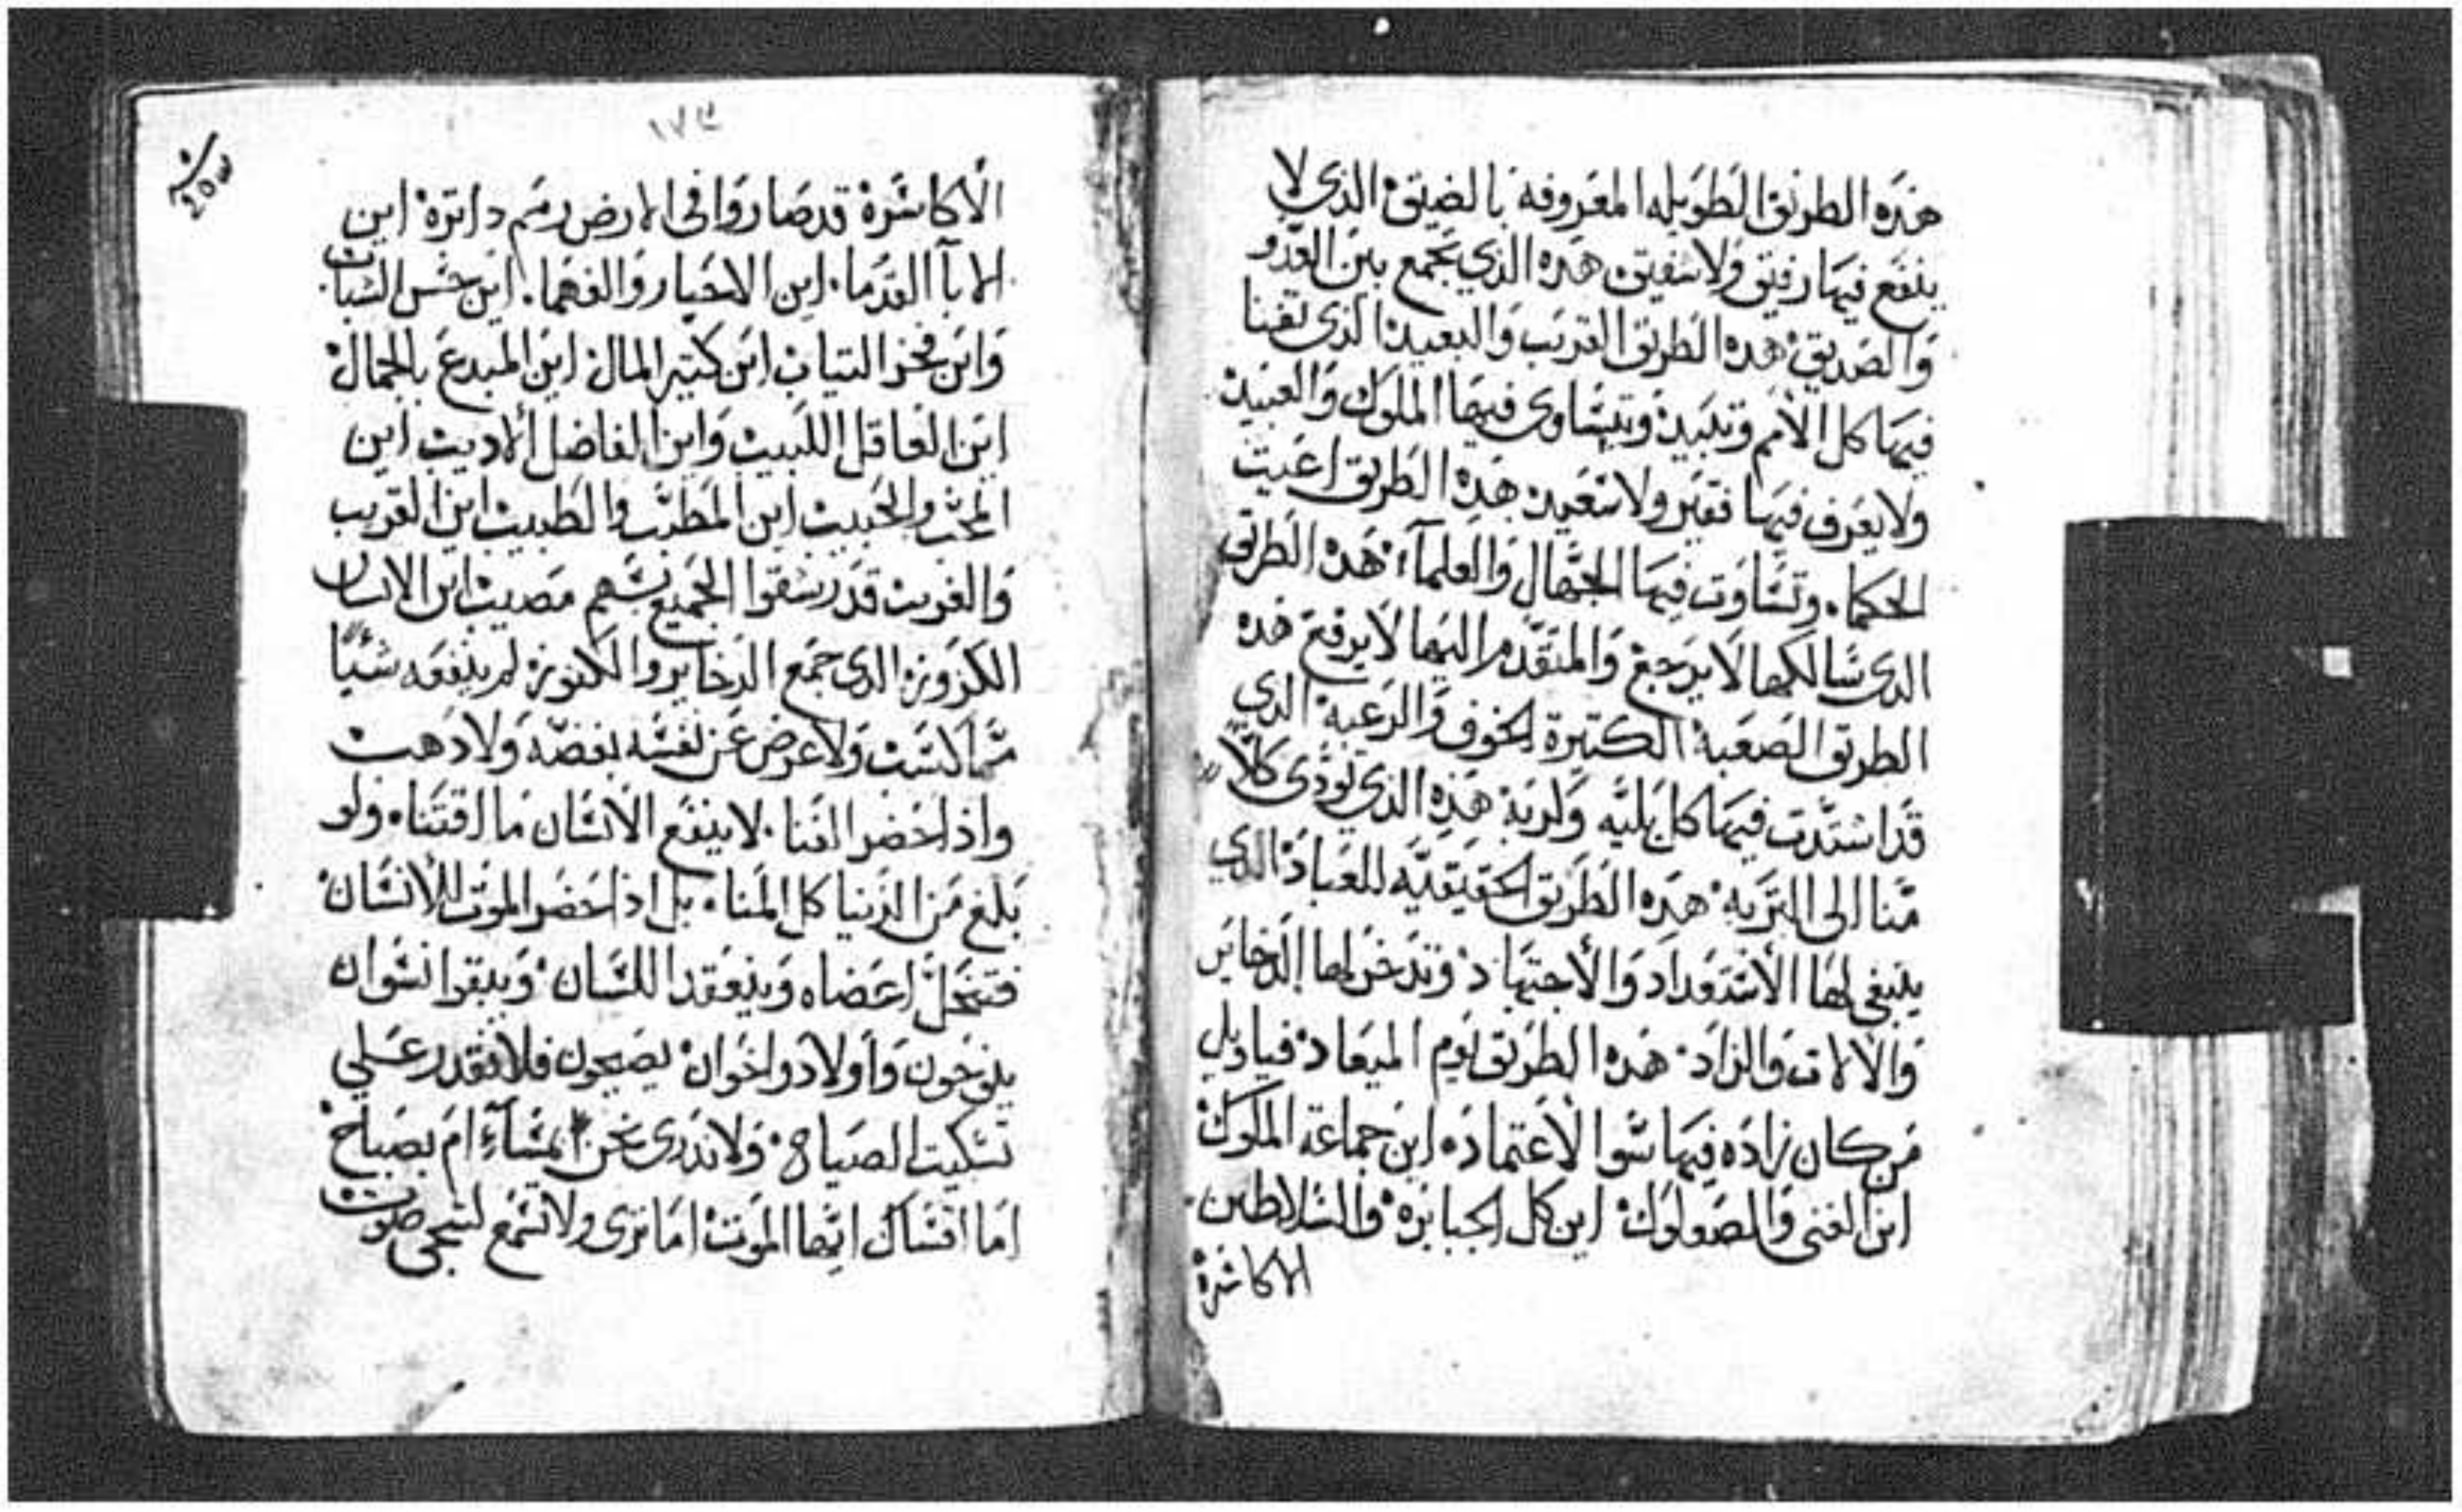 هذه الطريق الطويله المعروفة بالضيق الذي لا
ينفع فيها رفيق ولا شفيق هذه الذي تجمع بين العدو
والصديق هذه الطريق القريب والبعيد الذي تفنا
فيها كل الأمم وتبيد وتتساوى فيها الملوك والعبيد
ولا يعرف فيها فقير ولا سعيد هذه الطريق اعيت
الحكما وتساوت فيها الجهال والعلماء هذه الطريق
الذي سالكها لا يرجع والمتقدم اليها لا يرفع هذه
الطريق الصعبة الكتيرة الخوف والرعبة الذي
قد اشتدت فيها كل بليه وكربة هذه الذي تودي كلاً
منا الى التربه هذه الطريق الحقيقيه للعباد الذي
ينبغي لها الأستعداد والأجتهاد وتدخر لها الدخاير
والالات والزاد هذه الطريق ليوم الميعاد فيا ويل
من كان زاده فيها سوا الأعتماد اين جماعة الملوك
اين الغنى والصعلوك اين كل الجبابرة والسلاطين
الاكاسرة
١٧٣
الاكاسرة قد صاروا في الارض رمم داترة اين
الابآ القدما اين الاخيار والفهما اين حسن الشباب
واين فخر التياب اين كتير المال اين المبدع بالجمال
اين العاقل اللبيب واين الفاضل الاديب اين
المحب والحبيب اين المطبب والطبيب اين القريب
والغريب قد رشقوا الجميع بسهم مصيب اين الانسان
الكزوز الذي جمع الدخاير والكنوز لم ينفعه شياً
مما كسب ولا عوض عن نفسه بفضه ولا دهب
واذا حضر الفنا لا ينفع الأنسان ما اقتناه ولو
بلغ من الدنيا كل المنا بل اذا حضر الموت للأنسان
فتنحل اعضاه وينعقد اللسان ويبقوا نسوان
ينوحون وأولاد واخوان يصيحون فلا نقدر علي
تسكيت الصياح ولا ندري نحن بمسآء ام بصباح
اما اقساك ايها الموت اما ترى ولا تسمع لشجي صوت